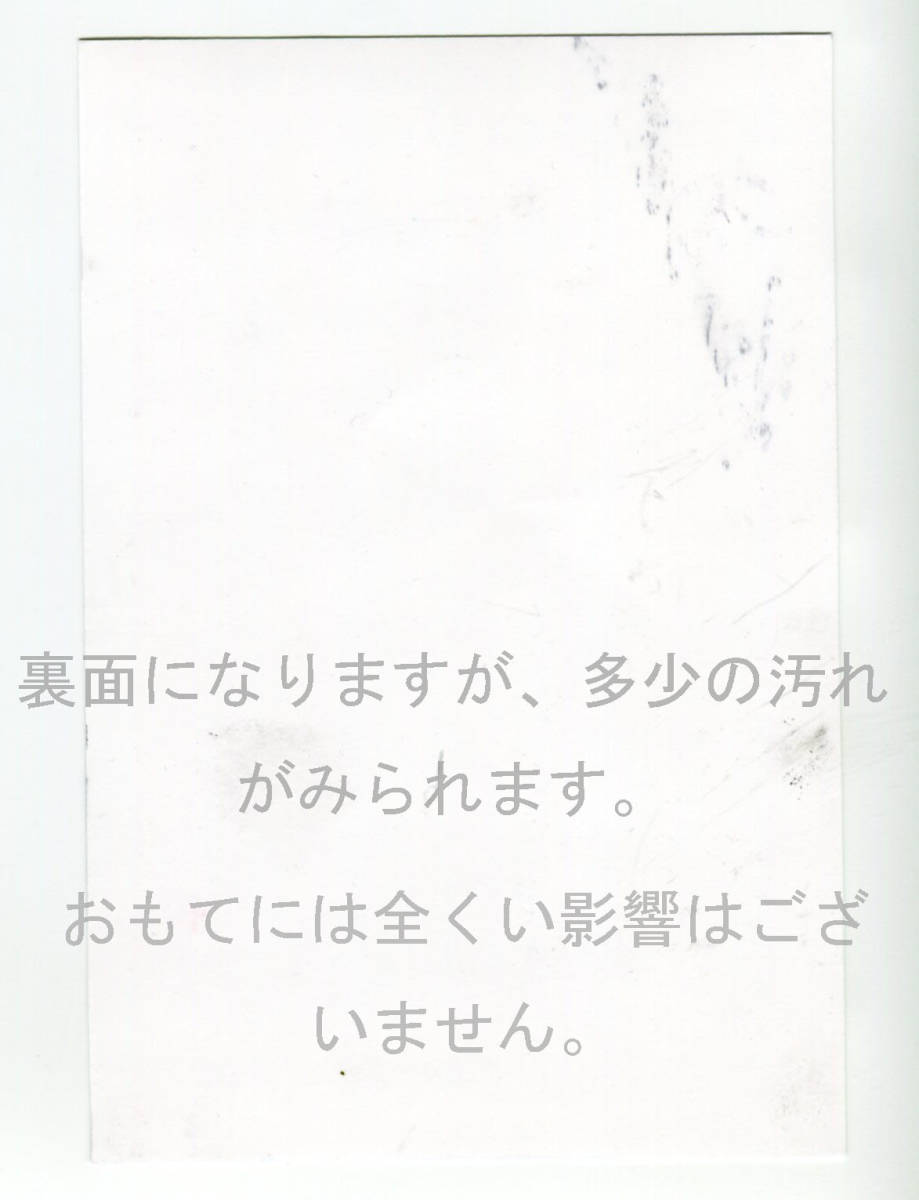 裏面になりますが、多少の汚れ
がみられます。
おもてには全くい影響はござ
いません。